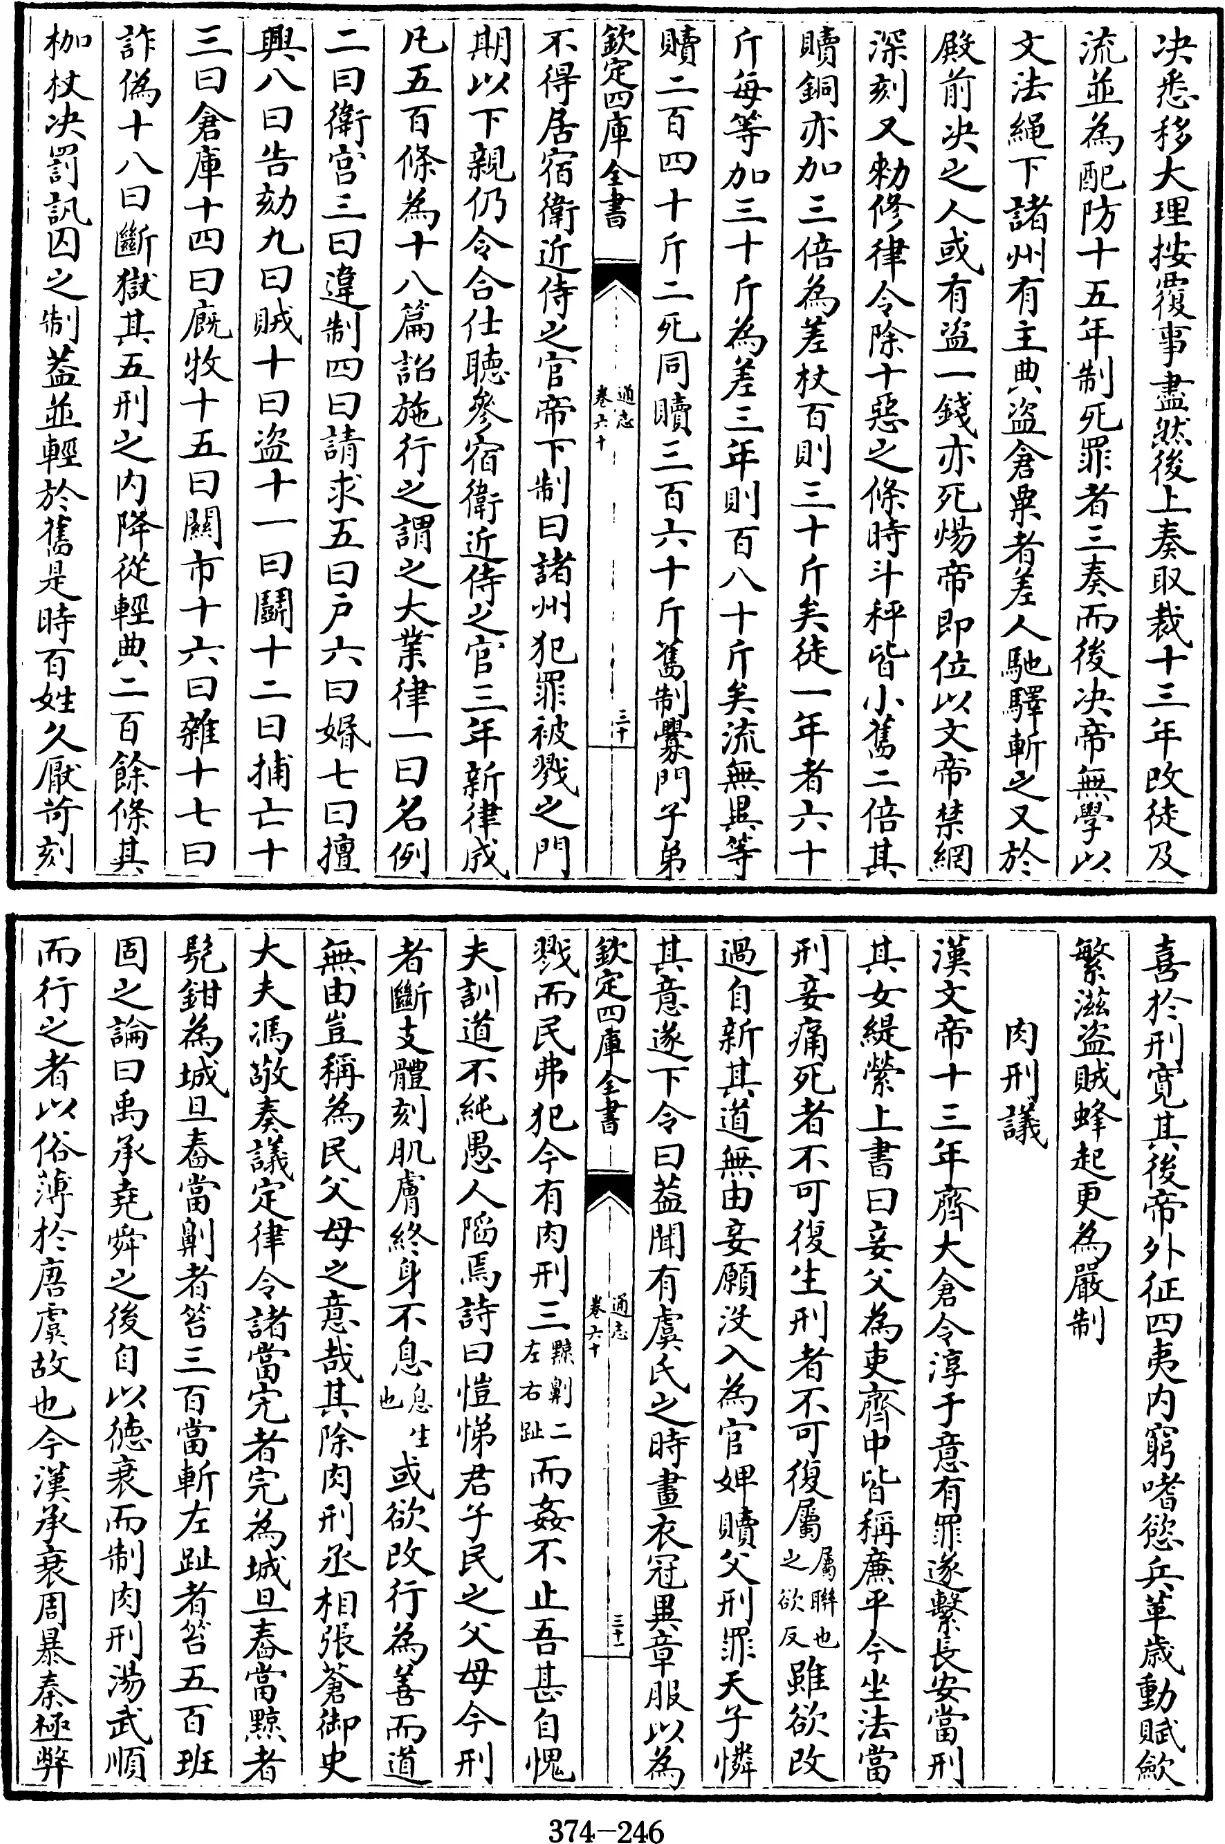 决悉移大理按覆事盡然後上奏取裁十三年改徒及
流並為配防十五年制死罪者三奏而後决帝無學以
文法繩下諸州有主典盜倉粟者差人馳驛斬之又於
殿前决之人或有盜一錢亦死煬帝即位以文帝禁網
深刻又勅修律令除十惡之條時斗秤皆小舊二倍其
贖銅亦加三倍為差杖百則三十斤矣徒一年者六十
斤每等加三十斤為差三年則百八十斤矣流無異等
贖二百四十斤二死同贖三百六十斤舊制釁門子弟
欽定四庫全書
通志
卷六十
三十
不得居宿衛近侍之官帝下制曰諸州犯罪被戮之門
期以下親仍令合仕聽參宿衛近侍之官三年新律成
凡五百條為十八篇詔施行之謂之大業律一曰名例
二曰衛宮三曰違制四曰請求五曰户六曰婚七曰擅
興八曰告劾九曰賊十曰盜十一曰鬬十二曰捕亡十
三曰倉庫十四曰廐牧十五曰關市十六曰雜十七曰
詐偽十八曰斷獄其五刑之内降從輕典二百餘條其
枷杖决罰訊囚之制葢並輕於舊是時百姓久厭苛刻
喜於刑寛其後帝外征四夷内窮嗜慾兵革歲動賦歛
繁滋盜賊蜂起更為嚴制
肉刑議
漢文帝十三年齊大倉令淳于意有罪遂繫長安當刑
其女緹縈上書曰妾父為吏齊中皆稱亷平今坐法當
刑妾痛死者不可復生刑者不可復屬屬聨也之欲反雖欲改
過自新其道無由妾願没入為官婢贖父刑罪天子憐
其意遂下令曰葢聞有虞氏之時畫衣冠異章服以為
欽定四庫全書
通志
卷六十
三十一
戮而民弗犯今有肉刑三黥劓二左右趾而姦不止吾甚自愧
夫訓道不純愚人䧟焉詩曰愷悌君子民之父母今刑
者斷支體刻肌膚終身不息息生也或欲改行為善而道
無由豈稱為民父母之意哉其除肉刑丞相張蒼御史
大夫馮敬奏議定律令諸當完者完為城旦舂當黥者
髠鉗為城旦舂當劓者笞三百當斬左趾者笞五百班
固之論曰禹承堯舜之後自以德衰而制肉刑湯武順
而行之者以俗薄於唐虞故也今漢承衰周暴秦極弊
374-246